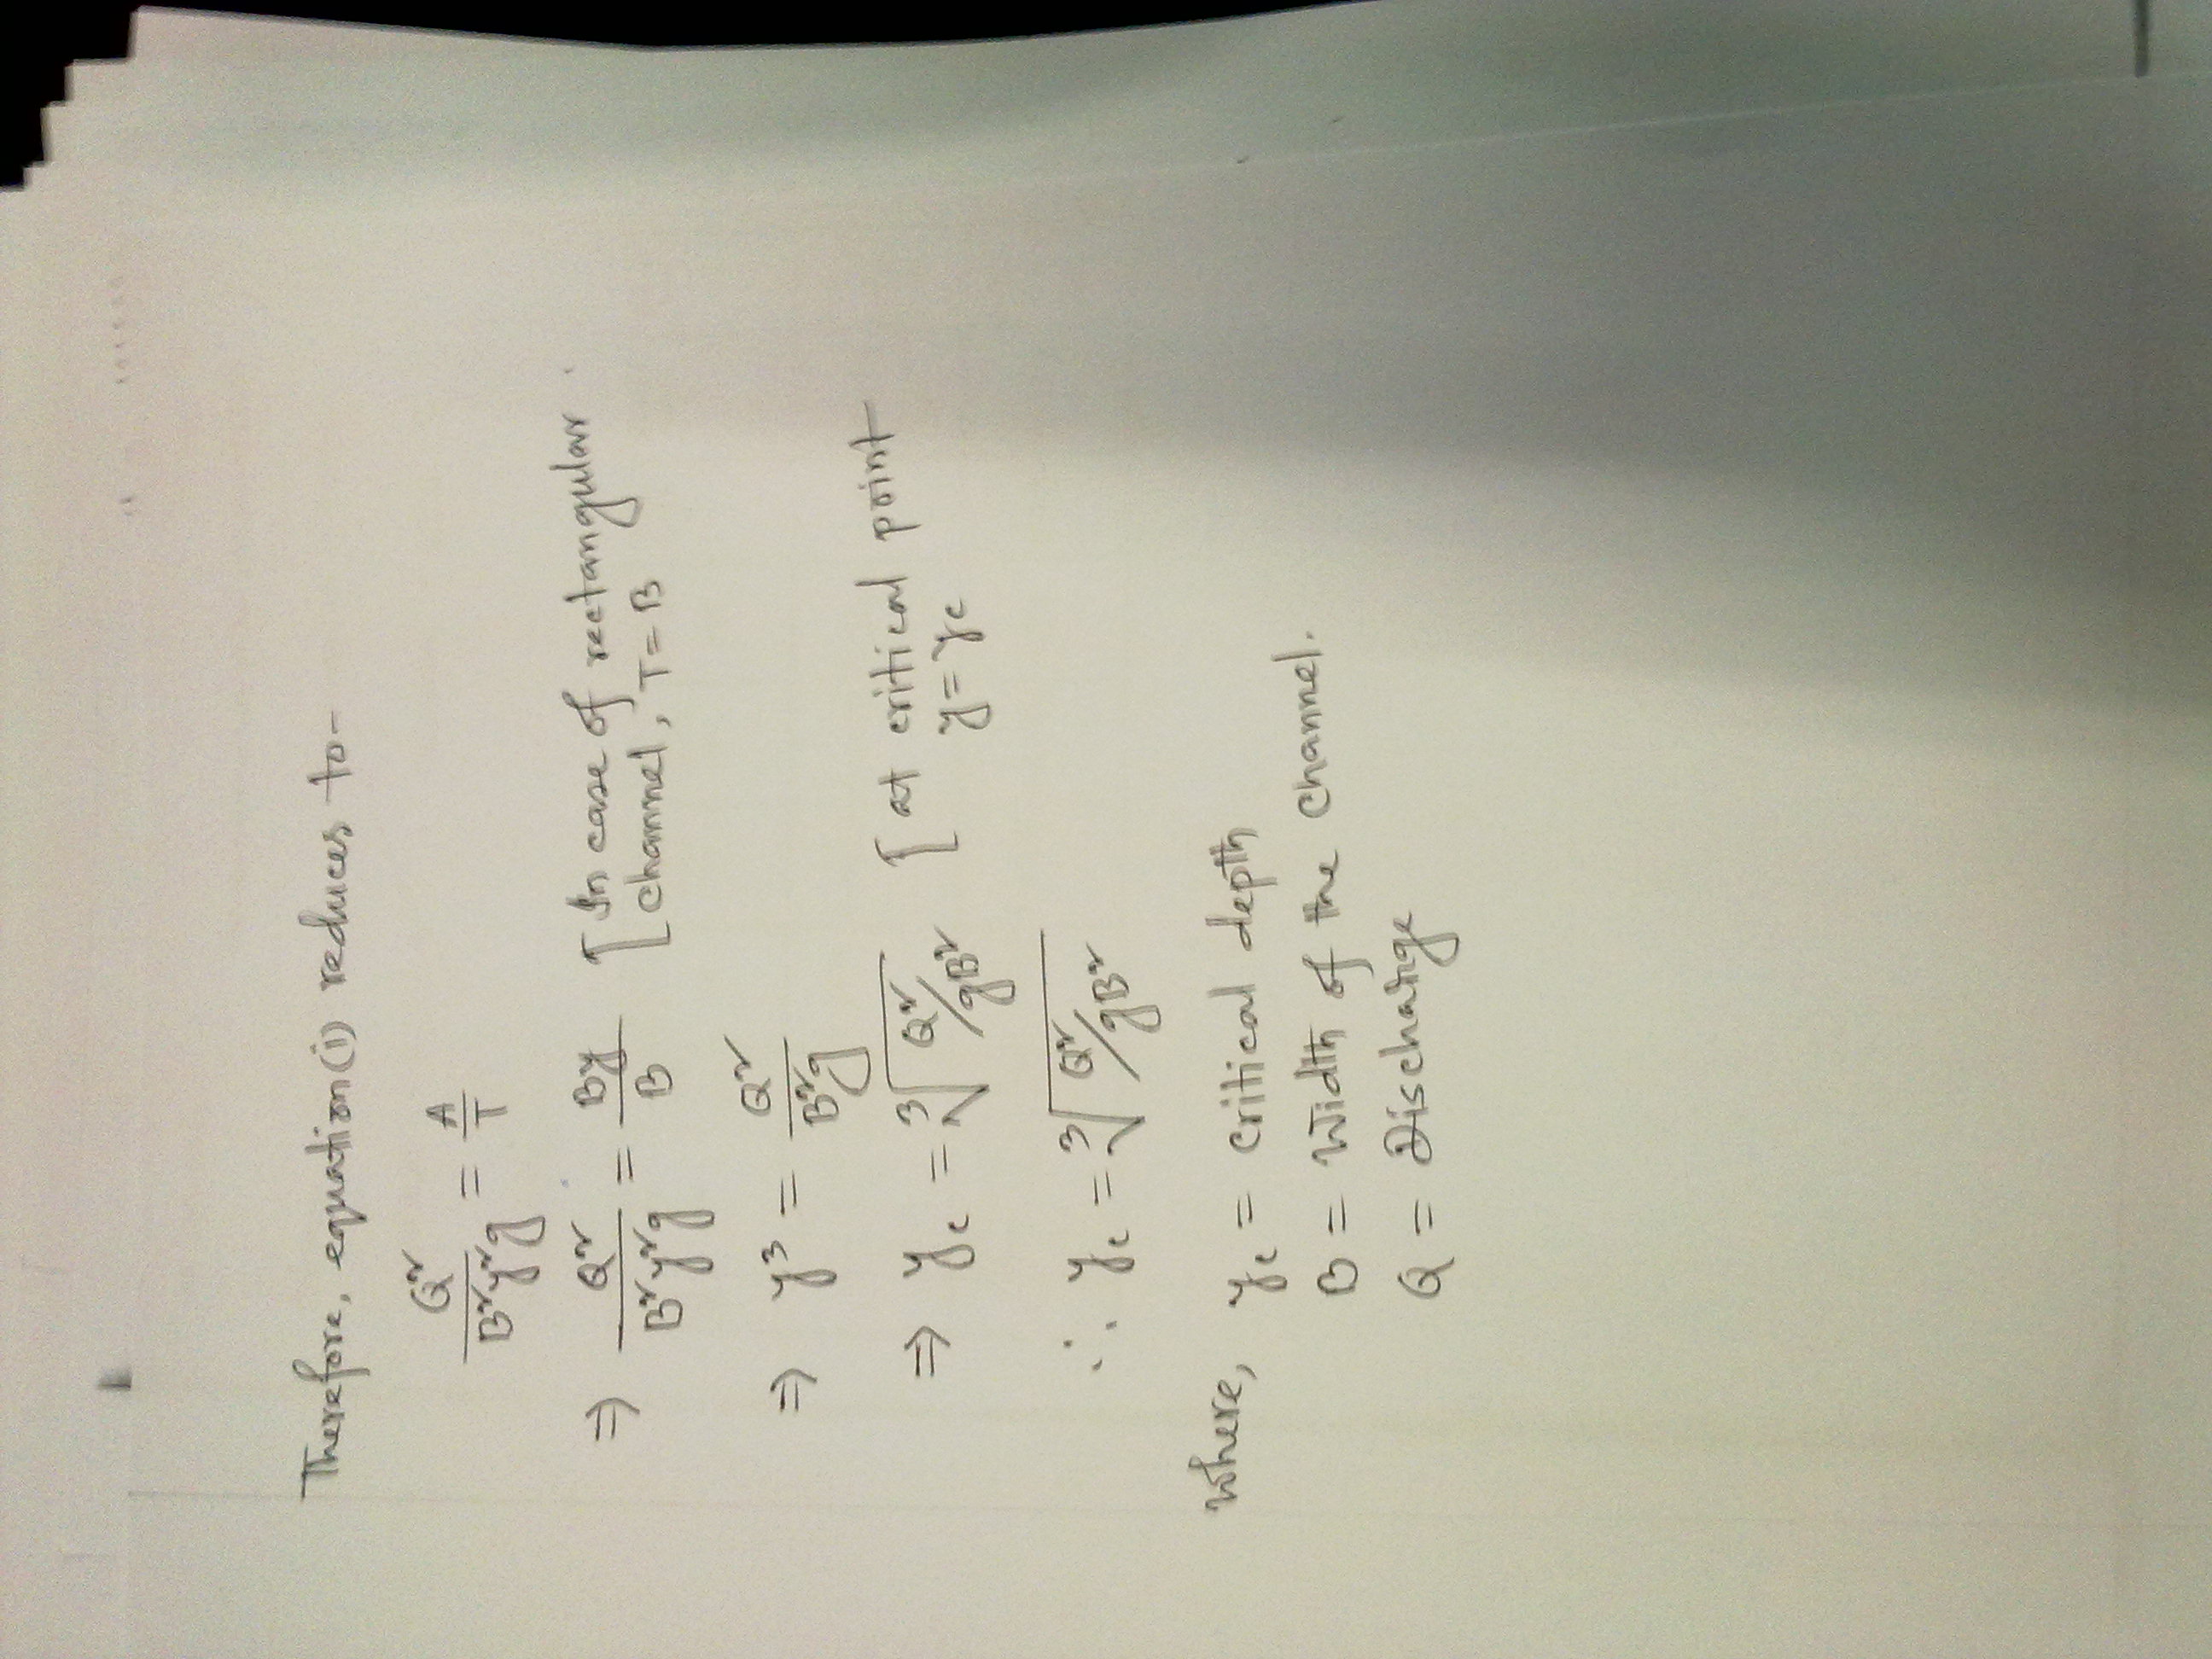 Therefore, equation (i) reduces to-
Q²/B²y²g = A/T
⇒ Q²/B²y²g = By/B [In case of rectangular
channel, T = B
⇒ y³ = Q²/B²g
⇒ yc = ³√(Q²/gB²) [at critical point
y = yc
∴ yc = ³√(Q²/gB²)
where, yc = critical depth
B = Width of the channel.
Q = Discharge